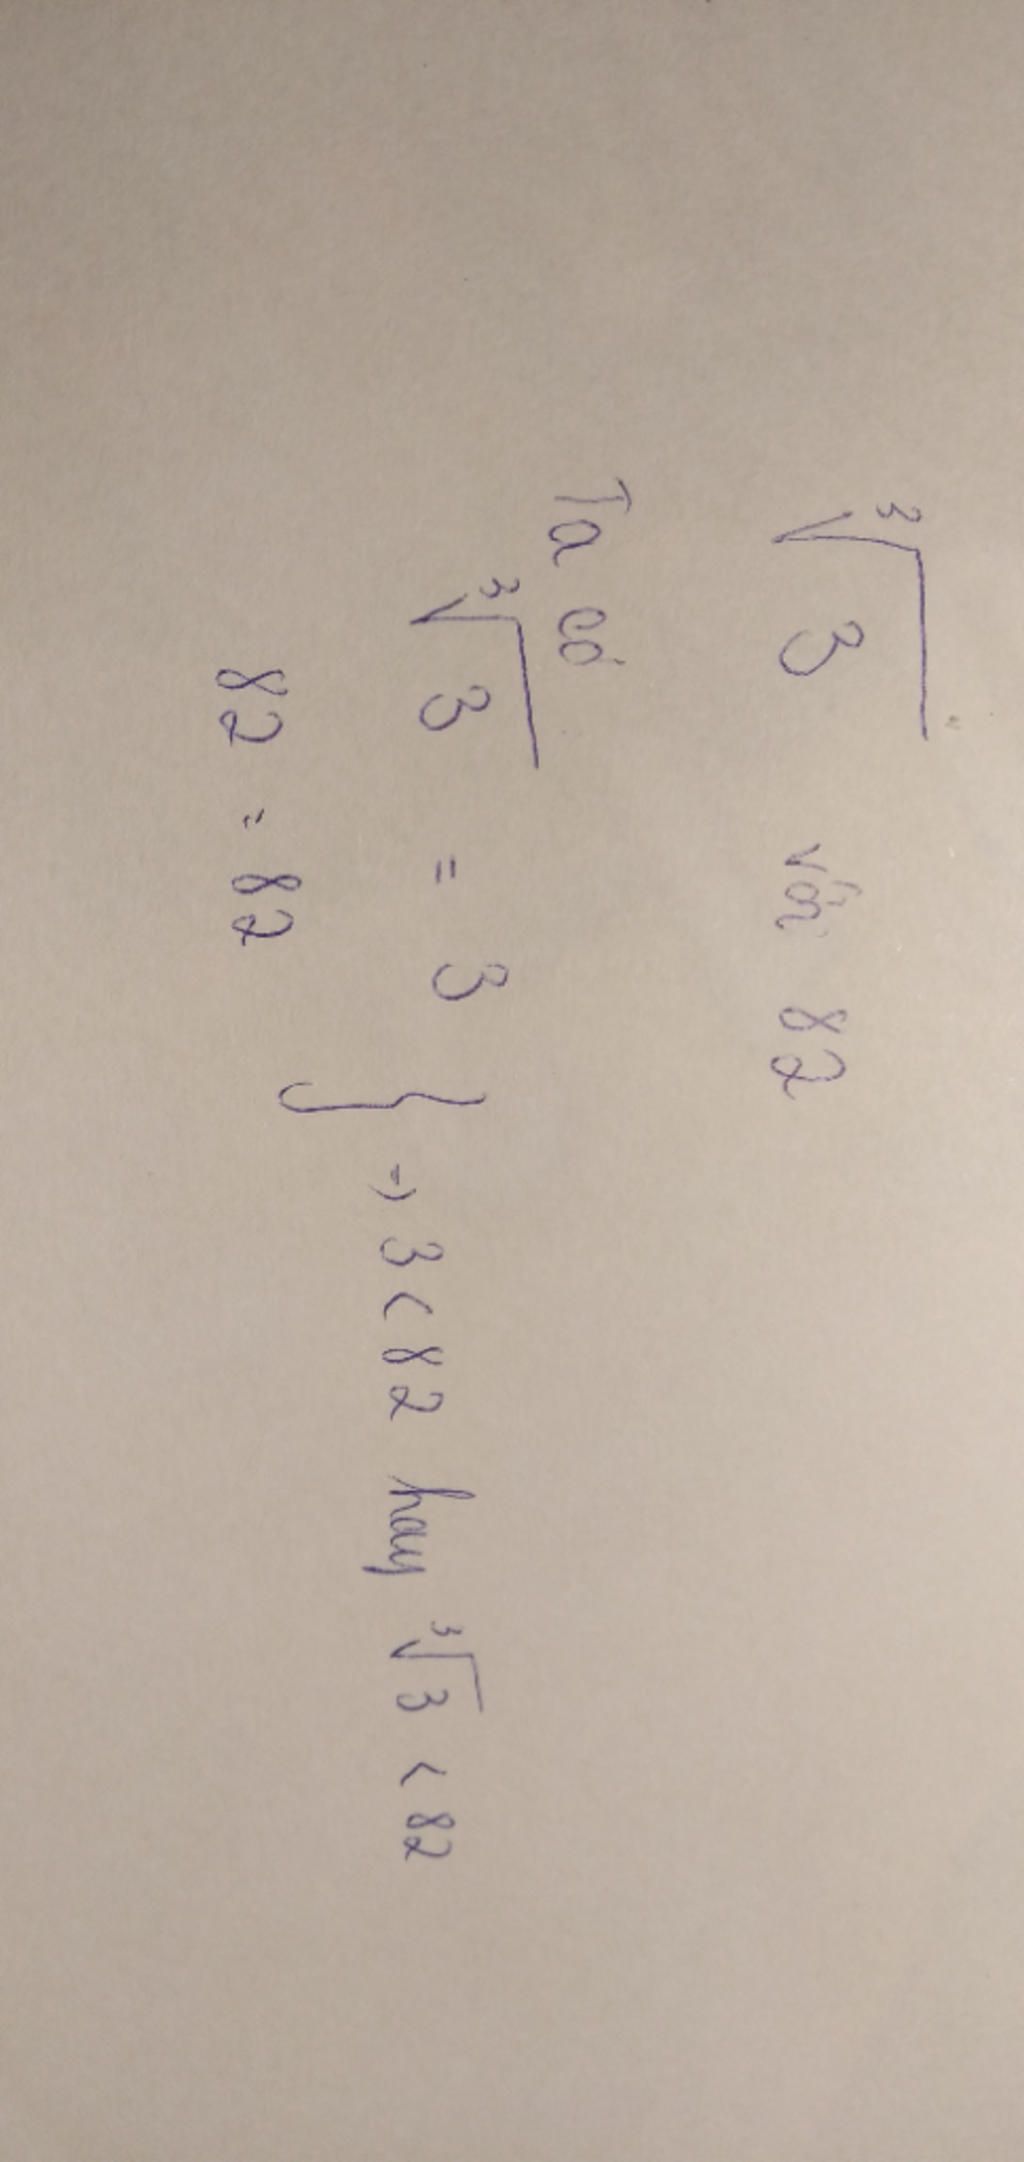 ∛3 với 82
Ta có
∛3 = 3
82 = 82
} => 3 < 82 hay ∛3 < 82